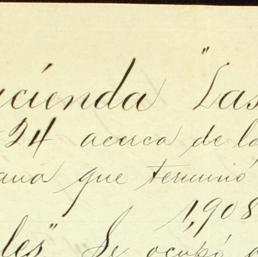 cienda "Las
24 acerca de la
ana que terminó
1,908
les" Se ocupó